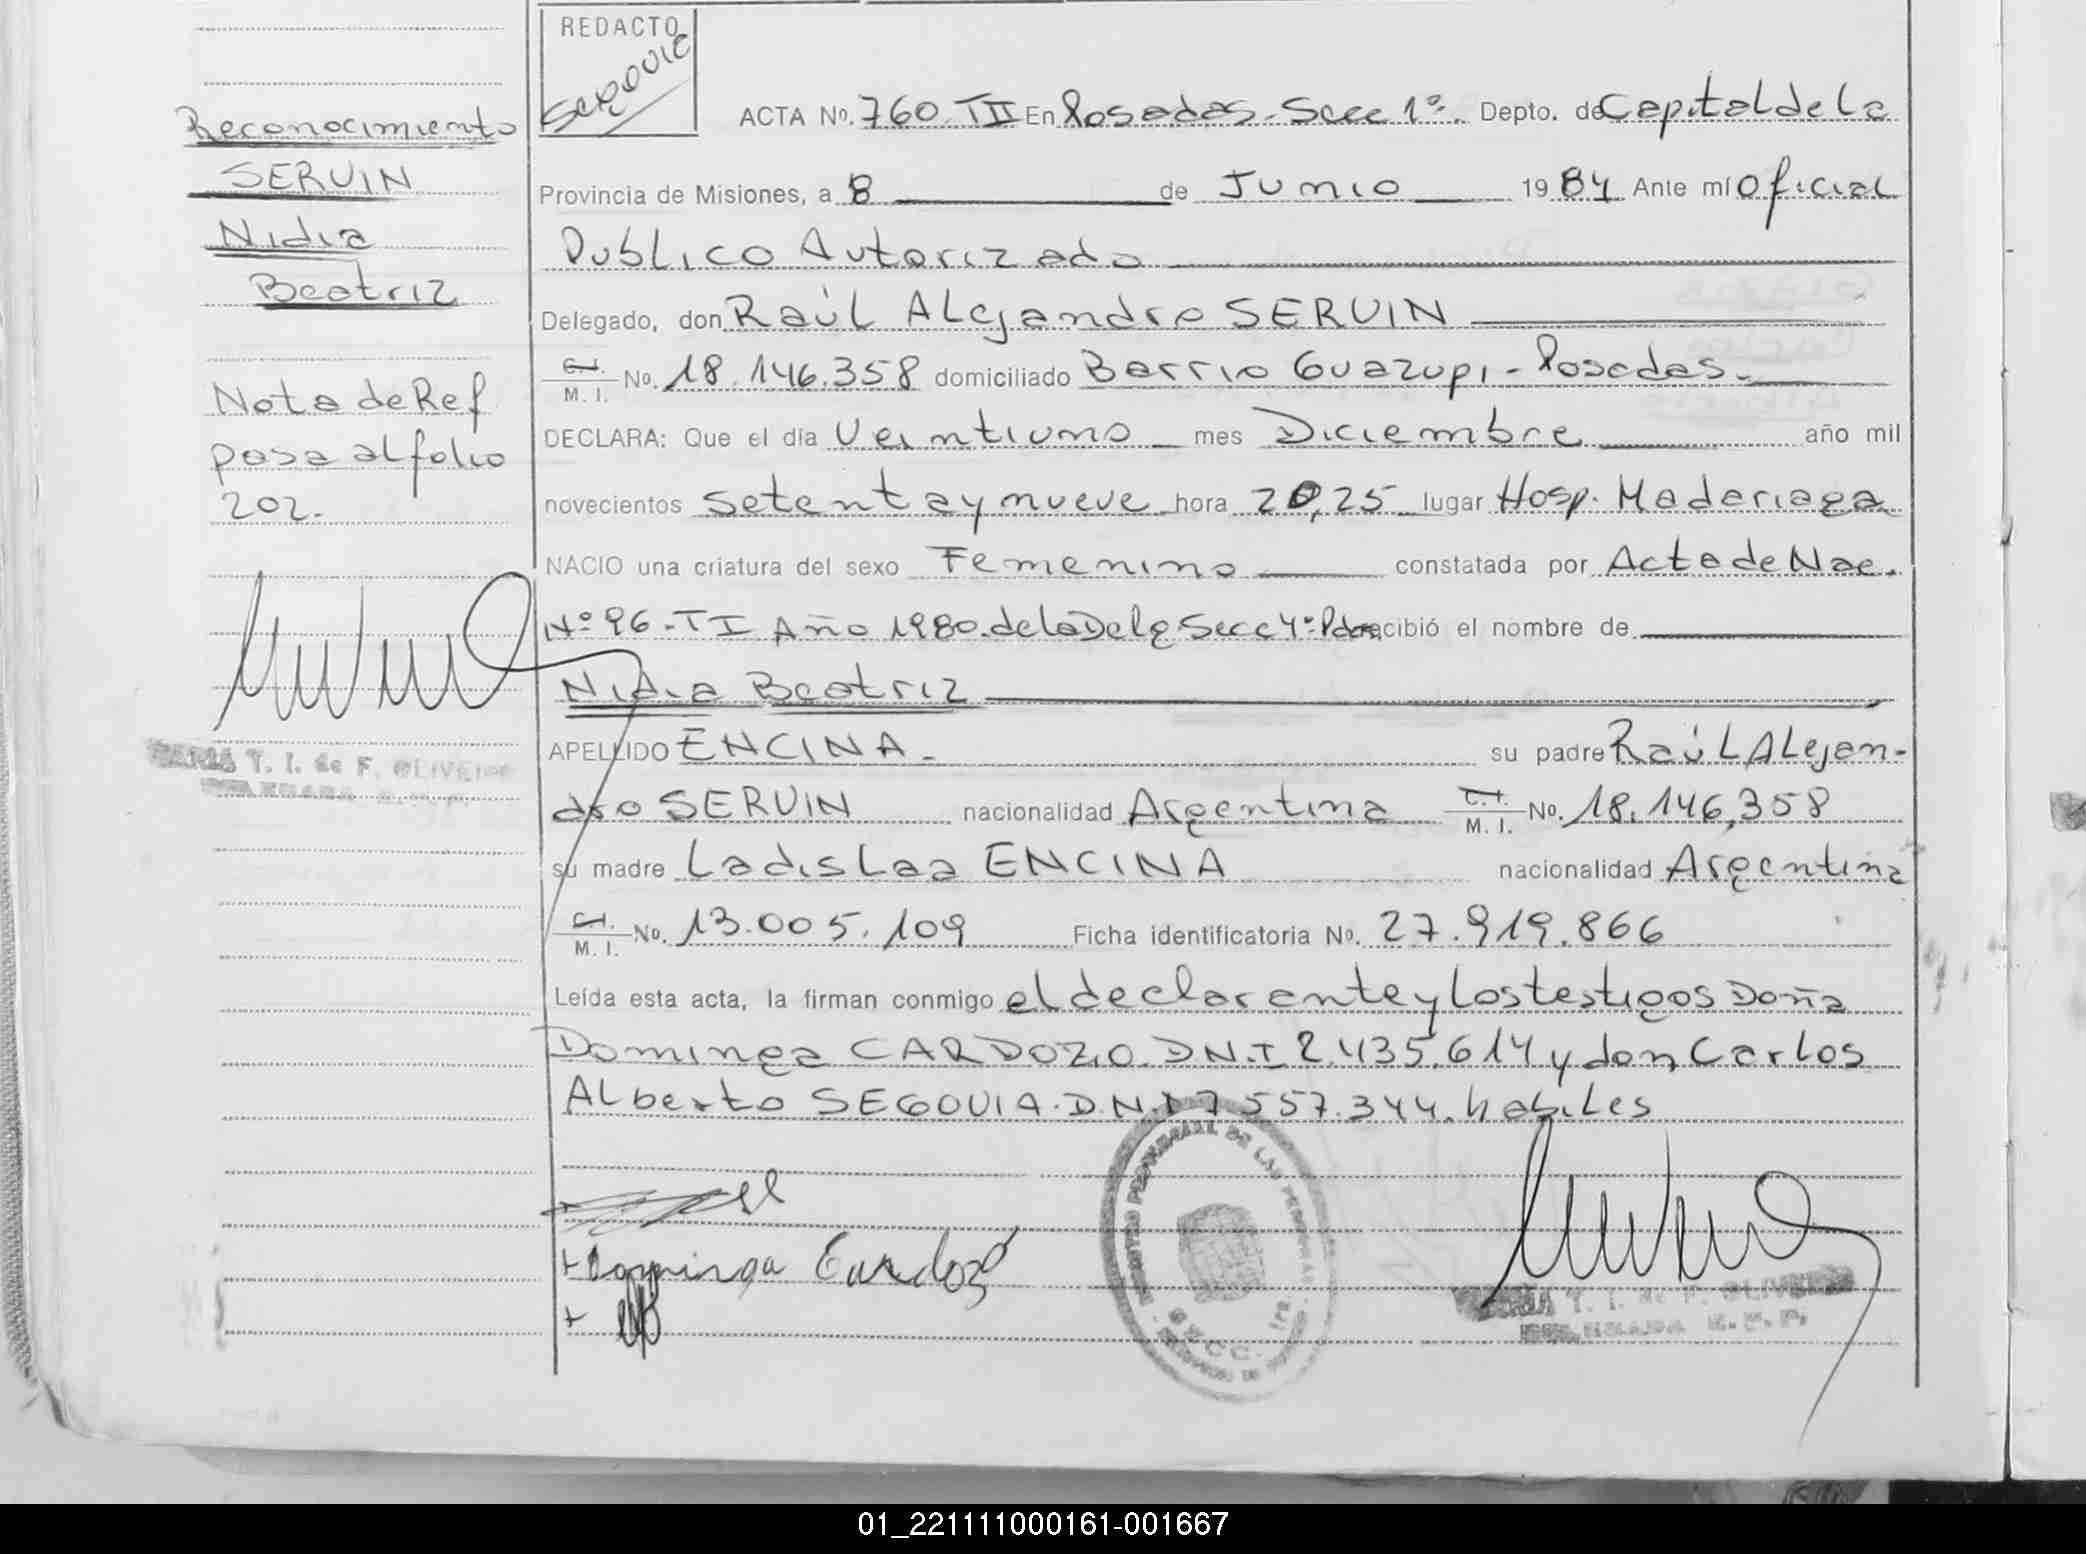 REDACTO
SEGOVIA
Reconocimiento
SERVIN
Nidia
Beatriz
Nota de Ref
pasa al folio
202.
MARIA T. I. de F. OLIVEIRA
ACTA No. 760 TII En Posadas - Secc 1º. Depto. de Capital de la
Provincia de Misiones, a 8 de Junio 1984 Ante mí Oficial
Publico Autorizado
Delegado, don Raúl Alejandro SERVIN
C.I. M. I. No. 18.146.358 domiciliado Barrio Guazupi - Posadas.
DECLARA: Que el día Veintiuno mes Diciembre año mil
novecientos setenta y nueve hora 20,25 lugar Hosp. Madariaga
NACIO una criatura del sexo Femenino constatada por Acta de Nac.
Nº 96 - TI Año 1980. de la Deleg Secc 4º Pdas recibió el nombre de
Nidia Beatriz
APELLIDO ENCINA. su padre Raúl Alejan-
dro SERVIN nacionalidad Argentina C.I. M. I. No. 18.146,358
su madre Ladislaa ENCINA nacionalidad Argentina
C.I. M. I. No. 13.005.109 Ficha identificatoria No. 27.919.866
Leída esta acta, la firman conmigo el declarante y los testigos Doña
Dominga CARDOZO. D.N.I 2.435.614 y don Carlos
Alberto SEGOVIA. D.N.I 7557.344. habiles
+ Dominga Cardozo
+
MARIA T. I. de F. OLIVEIRA
01_221111000161-001667